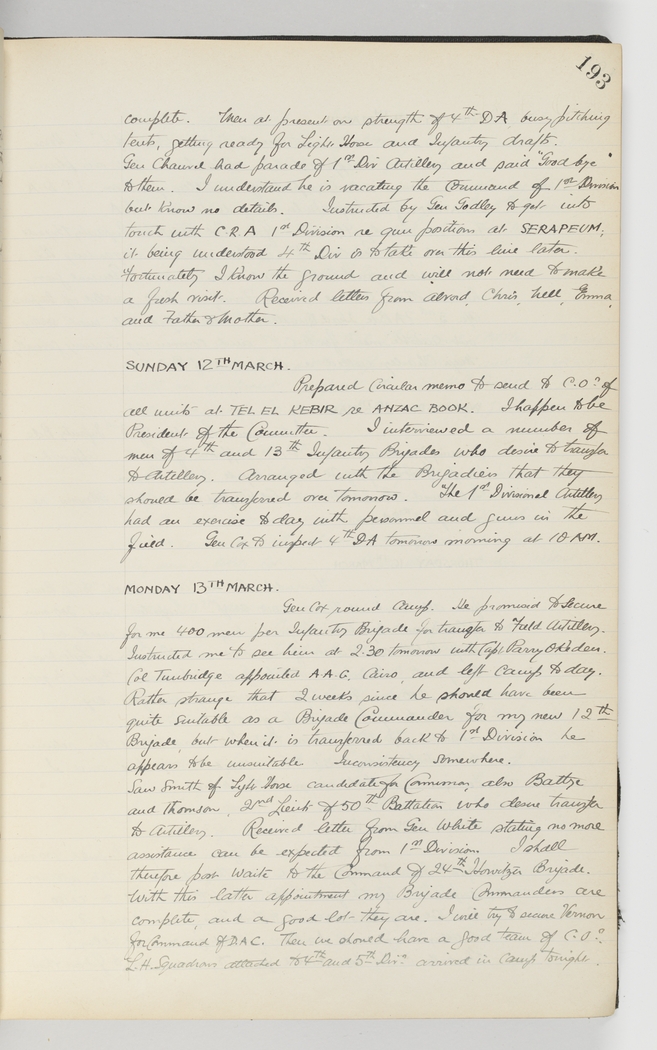 193
complete. Men at present on strength of 4th D A busy pitching
tents, getting ready for Light Horse and Infantry drafts.
Gen Chauvel had parade of 1st Div Artillery and said "Good bye"
to them. I understand he is vacating the Command of 1st Division
but know no details. Instructed by Gen Godley to get into
touch with C.R.A 1st Division re gun positions at SERAPEUM;
it being understood 4th Div is to take over this line later.
Fortunately I know the ground and will not need to make
a fresh visit. Received letters from abroad, Chris, Nell, Emma,
and Father & Mother.
SUNDAY 12TH MARCH.
Prepared Circular memo to send to C.Os of
all units at TEL EL KEBIR re ANZAC BOOK. I happen to be
President of the Committee. I interviewed a number of
men of 4th and 13th Infantry Brigades who desire to transfer
to Artillery. Arranged with the Brigadiers that they
should be transferred over tomorrow. The 1st Divisional Artillery
had an exercise to day with personnel and guns in the
field. Gen Cox to inspect 4th DA tomorrow morning at 10 AM.
MONDAY 13TH MARCH.
Gen Cox round Camp. He promised to secure
for me 400 men per Infantry Brigade for transfer to Field Artillery.
Instructed me to see him at 2.30 tomorrow with Capt Parry Okeden.
Col Tunbridge appointed A.A.G, Cairo, and left Camp to day.
Rather strange that 2 weeks since he should have been
quite suitable as a Brigade Commander for my new 12th
Brigade, but when it is transferred back to 1st Division he
appears to be unsuitable Inconsistency somewhere.
Saw Smith of Light Horse candidate for Commission, also
and Thomson, 2nd Lieuts of 50th Battalion who desire transfer
to Artillery. Received letter from Gen White stating no more
assistance can be expected from 1st Division. I shall
therefore post Waite to the Command of 24th Howitzer Brigade.
With this latter appointment my Brigade Commanders are
complete, and a good lot they are. I will try to secure Vernon
for Command of D.A.C. Then we should have a good team of C.Os.
L.H. Squadrons attached to 4th and 5th Divs arrived in Camp tonight.